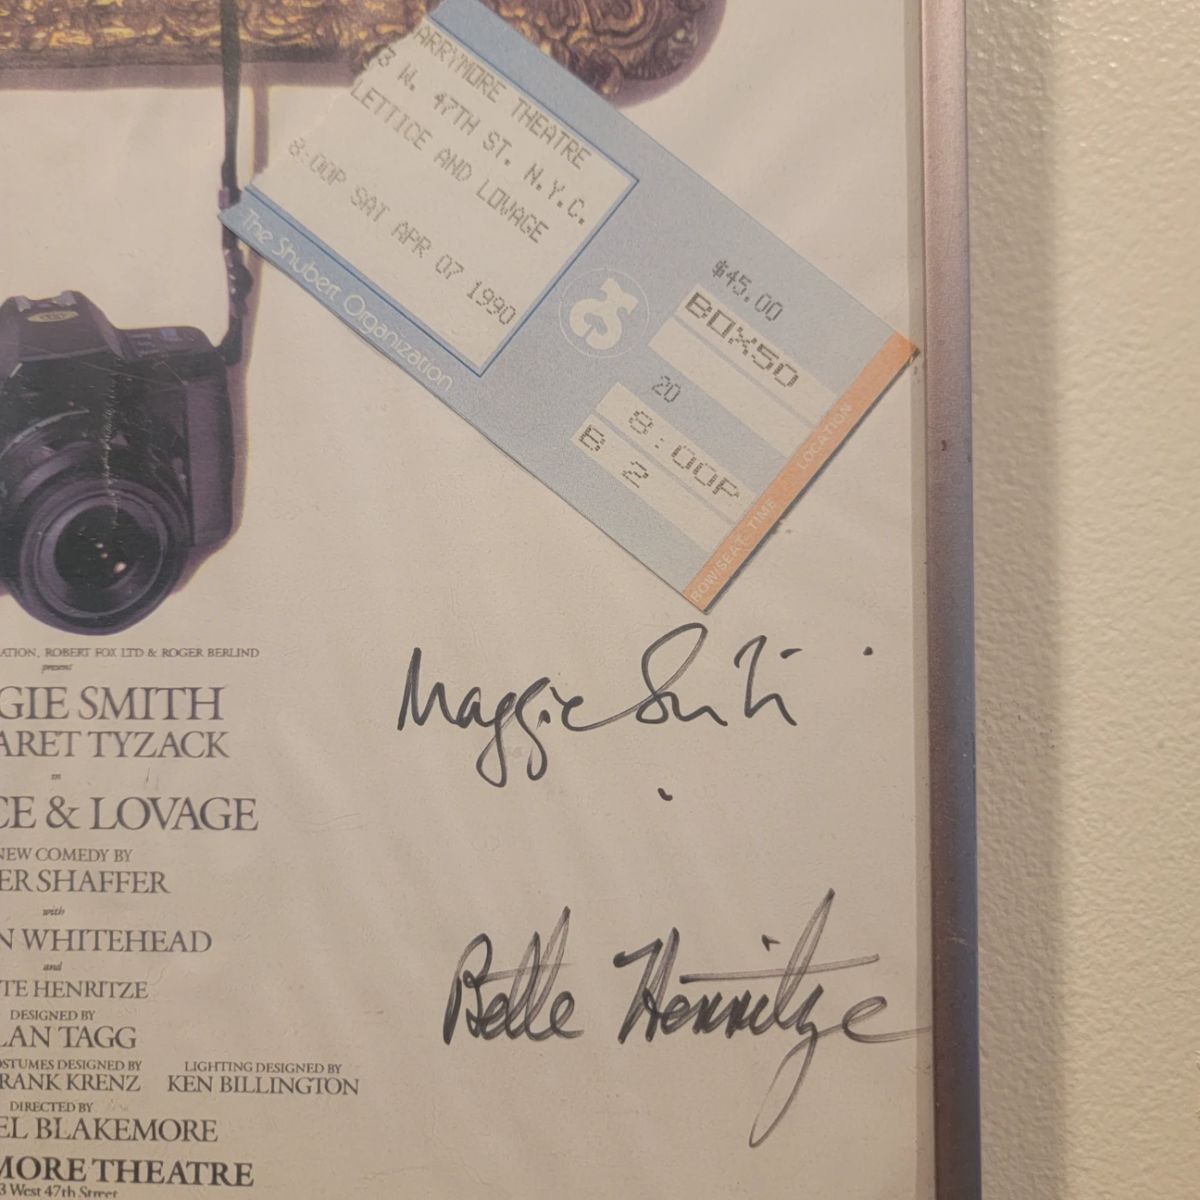 ARRYMORE THEATRE
3 W. 47TH ST. N.Y.C.
LETTICE AND LOVAGE
8:00P SAT APR 07 1990
The Shubert Organization
$45.00
BOX50
20
8:00P
B 2
ROW/SEAT TIME LOCATION
Maggie Smith
Bette Henritze
ATION, ROBERT FOX LTD & ROGER BERLIND
present
GIE SMITH
ARET TYZACK
in
CE & LOVAGE
NEW COMEDY BY
ER SHAFFER
with
N WHITEHEAD
and
TE HENRITZE
DESIGNED BY
LAN TAGG
OSTUMES DESIGNED BY
RANK KRENZ
LIGHTING DESIGNED BY
KEN BILLINGTON
DIRECTED BY
EL BLAKEMORE
MORE THEATRE
3 West 47th Street